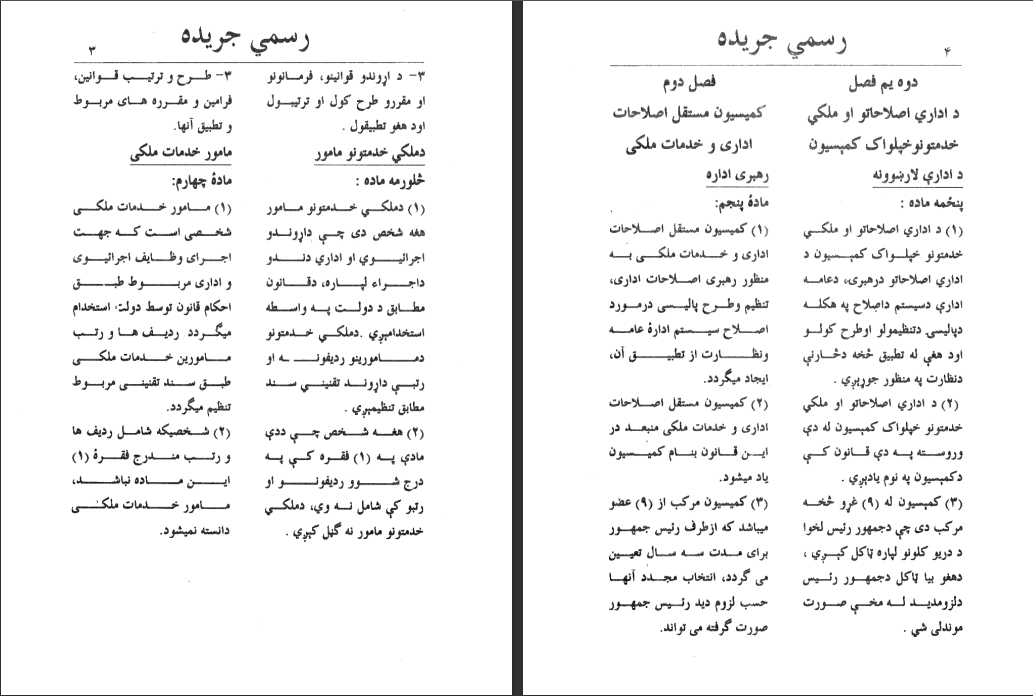 رسمي جريده
۳
۳- د اړوندو قوانينو، فرمانونو
او مقررو طرح کول او ترتيبول
اود هغو تطبيقول .
دملکي خدمتونو مامور
څلورمه ماده :
(۱) دملکي خدمتونو مامور
هغه شخص دی چې داړوندو
اجرائيوي او اداري دندو
داجراء لپاره، دقانون
مطابق د دولت په واسطه
استخداميږي .دملکي خدمتونو
دمامورينو رديفونه او
رتبې داړوند تقنيني سند
مطابق تنظيميږي .
(۲) هغه شخص چې ددې
مادې په (۱) فقره کې په
درج شوو رديفونو او
رتبو کې شامل نه وي، دملکي
خدمتونو مامور نه ګڼل کېږي .
۳- طرح و ترتيب قوانين،
فرامين و مقرره های مربوط
و تطبيق آنها.
مامور خدمات ملکی
مادۀ چهارم:
(۱) مامور خدمات ملکی
شخصی است که جهت
اجرای وظايف اجرائيوی
و اداری مربوط طبق
احکام قانون توسط دولت استخدام
ميگردد رديف ها و رتب
مامورين خدمات ملکی
طبق سند تقنينی مربوط
تنظيم ميگردد.
(۲) شخصيکه شامل رديف ها
و رتب مندرج فقرۀ (۱)
اين ماده نباشد،
مامور خدمات ملکی
دانسته نميشود.
رسمي جريده
۴
دوه يم فصل
د اداري اصلاحاتو او ملکي
خدمتونوخپلواک کمېسيون
د ادارې لارښوونه
پنځمه ماده :
(۱) د اداري اصلاحاتو او ملکي
خدمتونو خپلواک کمېسيون د
اداري اصلاحاتو درهبرۍ، دعامه
ادارې دسيستم داصلاح په هکله
دپاليسۍ دتنظيمولو اوطرح کولو
اود هغې له تطبيق څخه دڅارنې
دنظارت په منظور جوړېږي .
(۲) د اداري اصلاحاتو او ملکي
خدمتونو خپلواک کمېسيون له دې
وروسته په دې قانون کې
دکمېسيون په نوم يادېږي .
(۳) کمېسيون له (۹) غړو څخه
مرکب دی چې دجمهور رئيس لخوا
د دريو کلونو لپاره ټاکل کېږي ،
دهغو بيا ټاکل دجمهور رئيس
دلزومديد له مخې صورت
موندلی شي .
فصل دوم
کميسيون مستقل اصلاحات
اداری و خدمات ملکی
رهبری اداره
مادۀ پنجم:
(۱) کميسيون مستقل اصلاحات
اداری و خدمات ملکی به
منظور رهبری اصلاحات اداری،
تنظيم وطرح پاليسی درمورد
اصلاح سيستم ادارۀ عامه
ونظارت از تطبيق آن،
ايجاد ميگردد.
(۲) کميسيون مستقل اصلاحات
اداری و خدمات ملکی منبعد در
اين قانون بنام کميسيون
ياد ميشود.
(۳) کميسيون مرکب از (۹) عضو
ميباشد که ازطرف رئيس جمهور
برای مدت سه سال تعيين
می گردد، انتخاب مجدد آنها
حسب لزوم ديد رئيس جمهور
صورت گرفته می تواند.